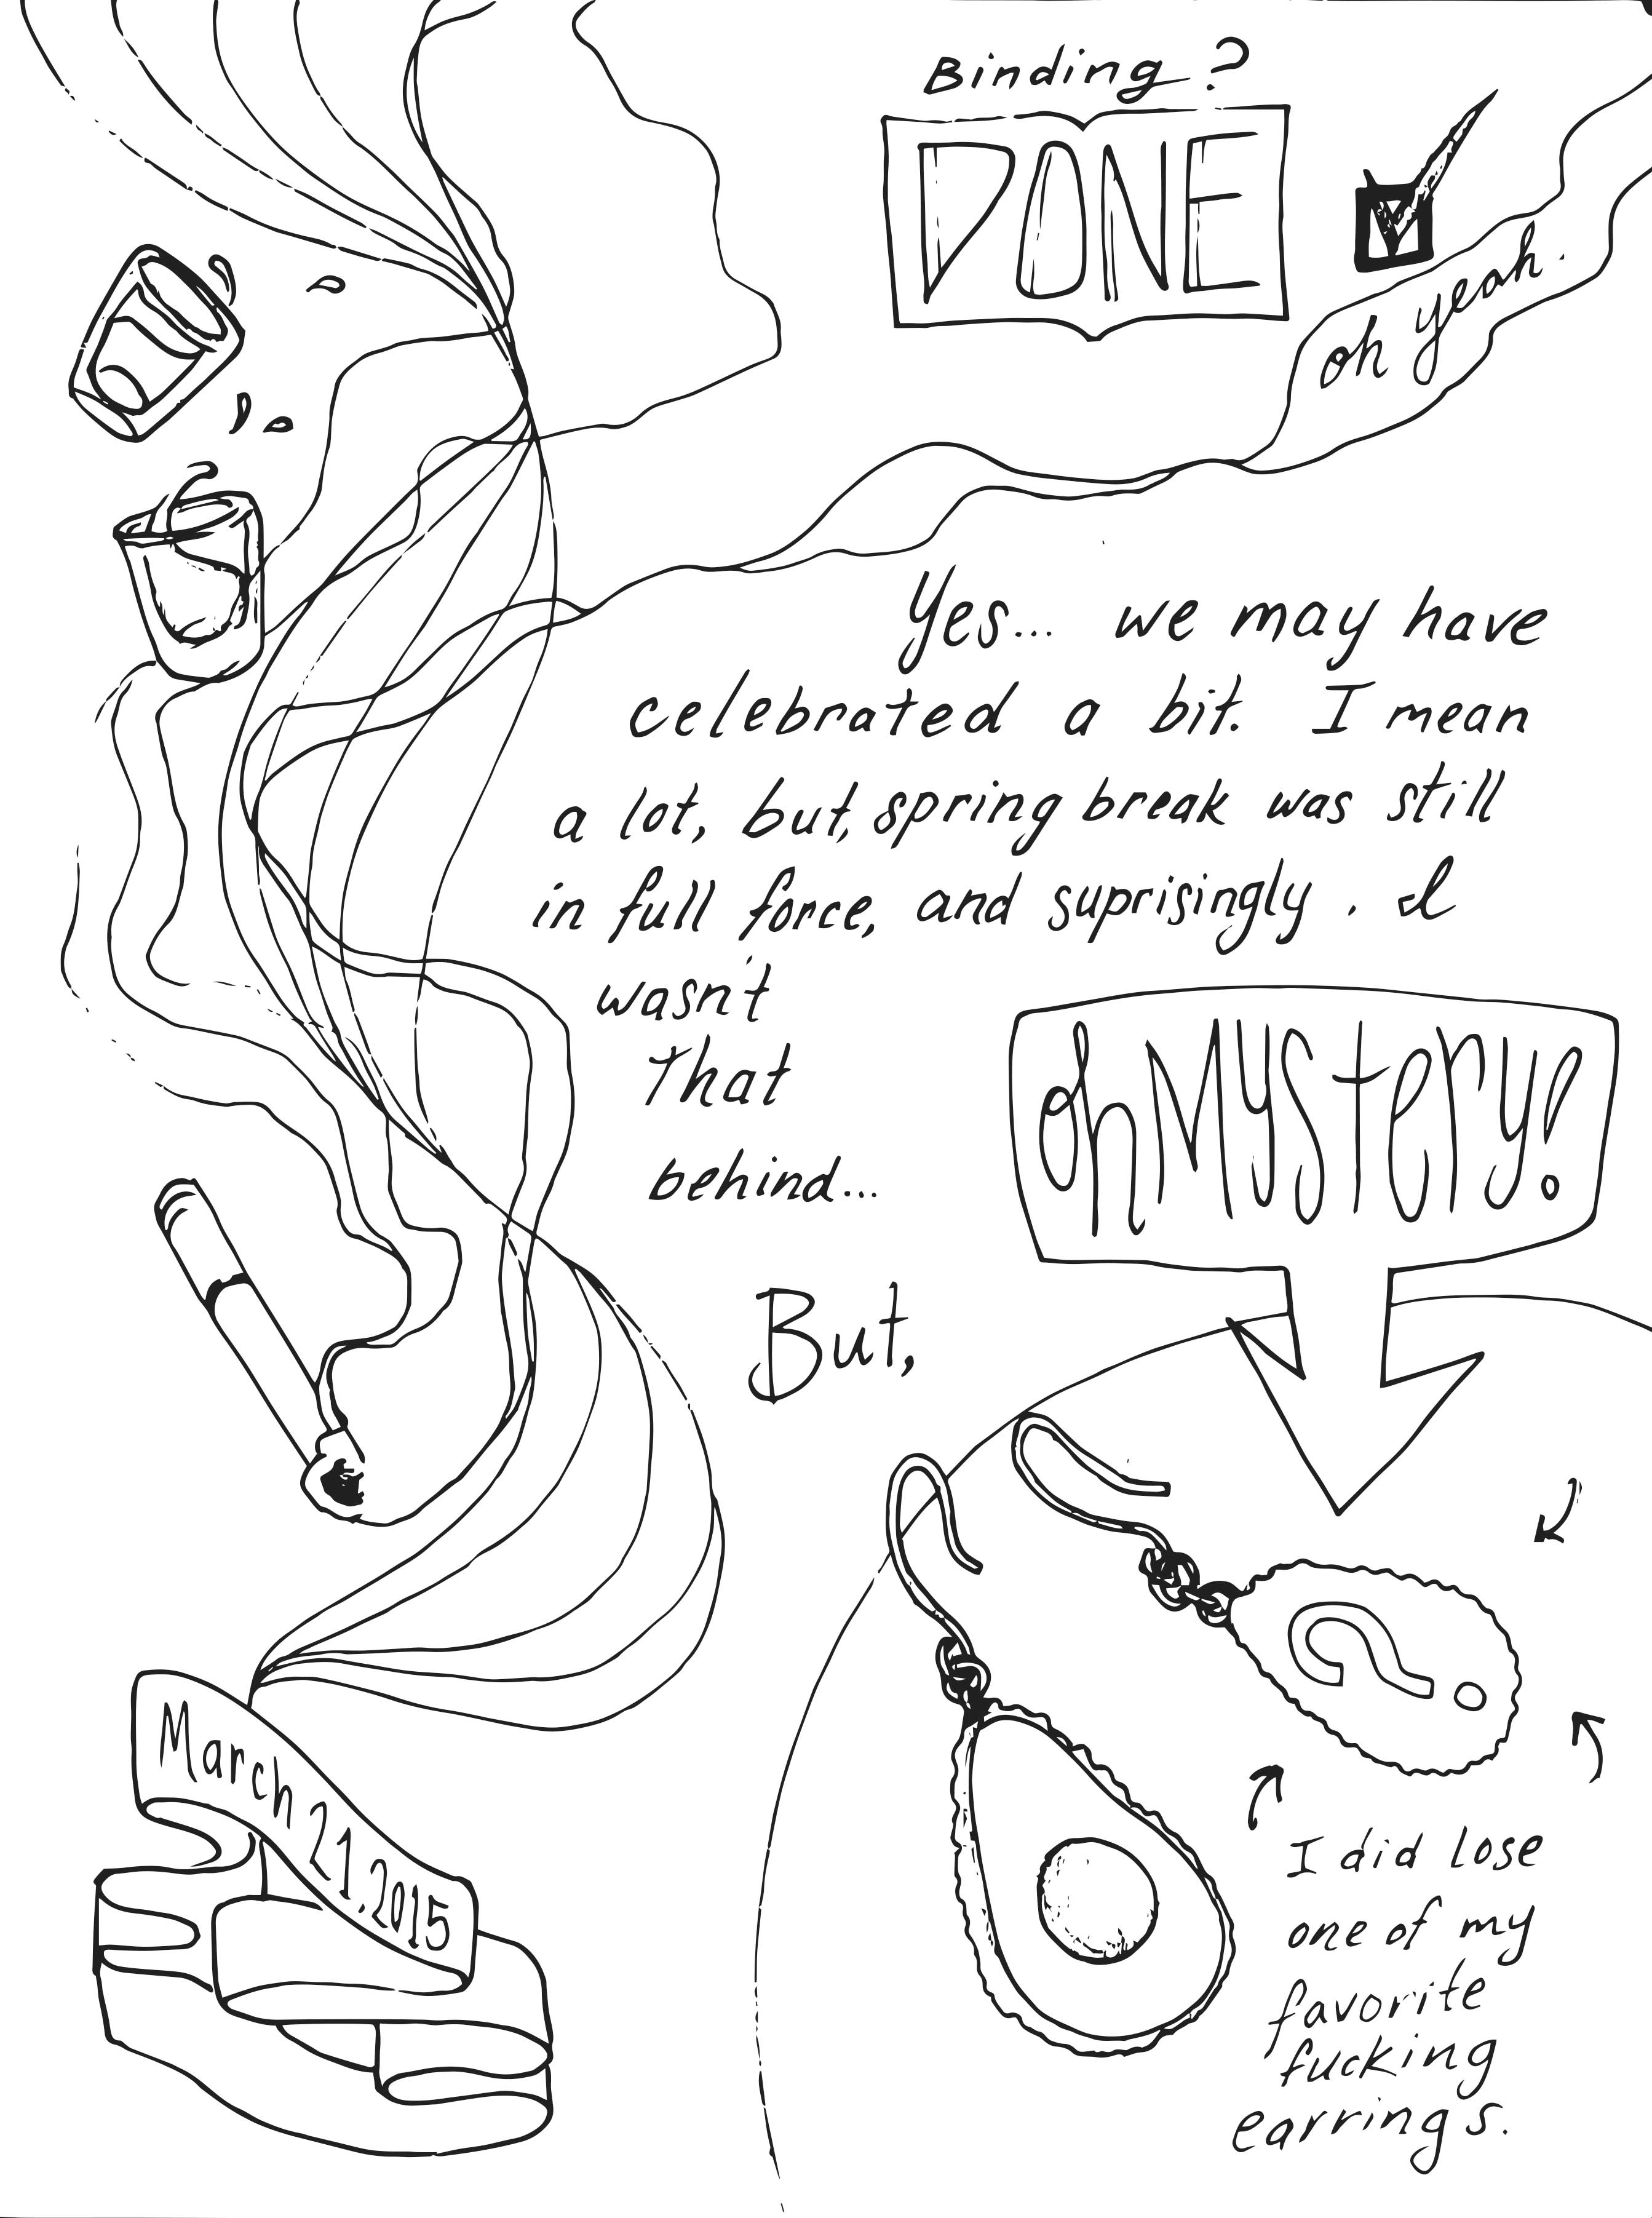 Binding?
DONE
oh yeah.
Yes... we may have
celebrated a bit. I mean
a lot, but, spring break was still
in full force, and suprisingly, I
wasn't
That
behind...
oh Mystery!
But,
?
March 21.2015
I did lose
one of my
favorite
fucking
earrings.